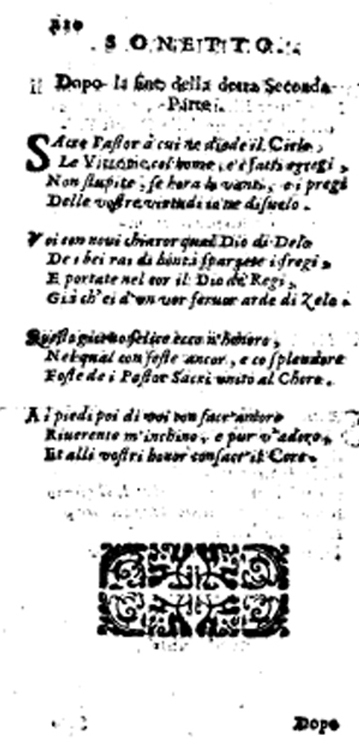 210
SONETTO.
Dopo la fine della detta Seconda
Parte.
SAcro Pastor à cui ne diede il Cielo,
Le Vittorie, col nome, e i fatti egregi,
Non stupite, se hora le vanti, e i pregi
Delle vostre virtudi io ne disuelo.
Voi con noui chiaror qual Dio di Delo
De i bei rai di bontà spargete i fregi,
E portate nel cor il Dio de' Regi,
Già ch'ei d'un vor feruor arde di Zelo.
Questo giorno felice ecco n'honoro,
Nel qual con feste ancor, e co splendore
Foste de i Pastor Sacri unito al Choro.
A i piedi poi di voi
Riuerente m'inchino, e pur v'adoro,
Et alli vostri honor consacr' il Core.
Dopo